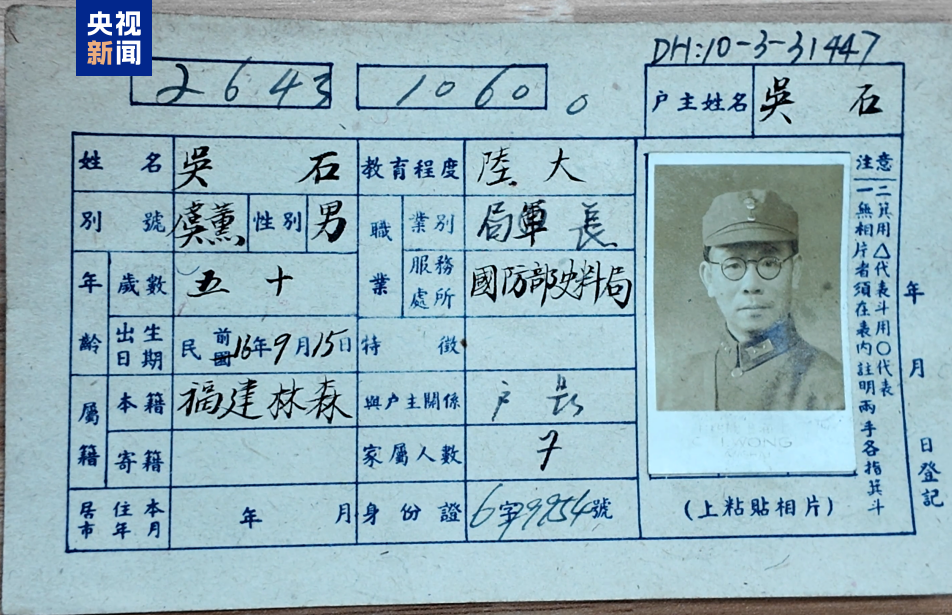 央视
新闻
DH:10-3-31447
2643
1060
0
户主姓名 吳石
姓名 吳石 教育程度 陸大
別號 虞薰 性別 男 職業 業別 局軍長
年齡 歲數 五十 服務處所 國防部史料局
出生日期 民前國16年9月15日 特徵
屬籍 本籍 福建林森 與户主關係 户長
寄籍 家屬人數 7
居住本市年月 年 月 身份證 6字9954號
注意
一無相片者須在表內註明兩手各指箕斗
二箕用△代表斗用〇代表
C. J. WONG
(上粘貼相片)
年 月 日登記